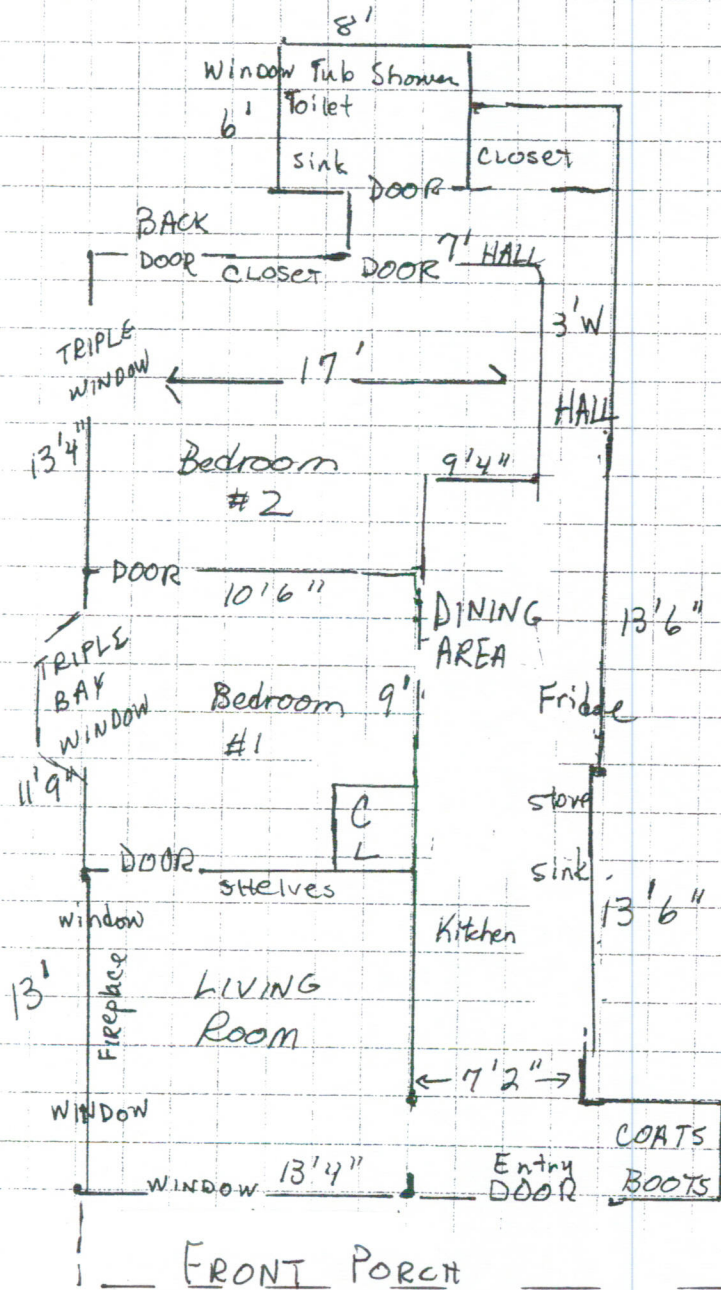 8'
Window Tub Shower
6' Toilet
sink
CLOSET
DOOR
BACK
DOOR CLOSET DOOR 7' HALL
3'W
TRIPLE
WINDOW
17'
HALL
13'4"
Bedroom
#2
9'4"
DOOR
10'6"
DINING
AREA
13'6"
TRIPLE
BAY
WINDOW
Bedroom
#1
9'
Fridge
11'9"
C
L
stove
DOOR
SHELVES
sink
window
Kitchen
13'6"
13'
Fireplace
LIVING
Room
7'2"
WINDOW
COATS
BOOTS
WINDOW 13'4"
Entry
DOOR
FRONT PORCH